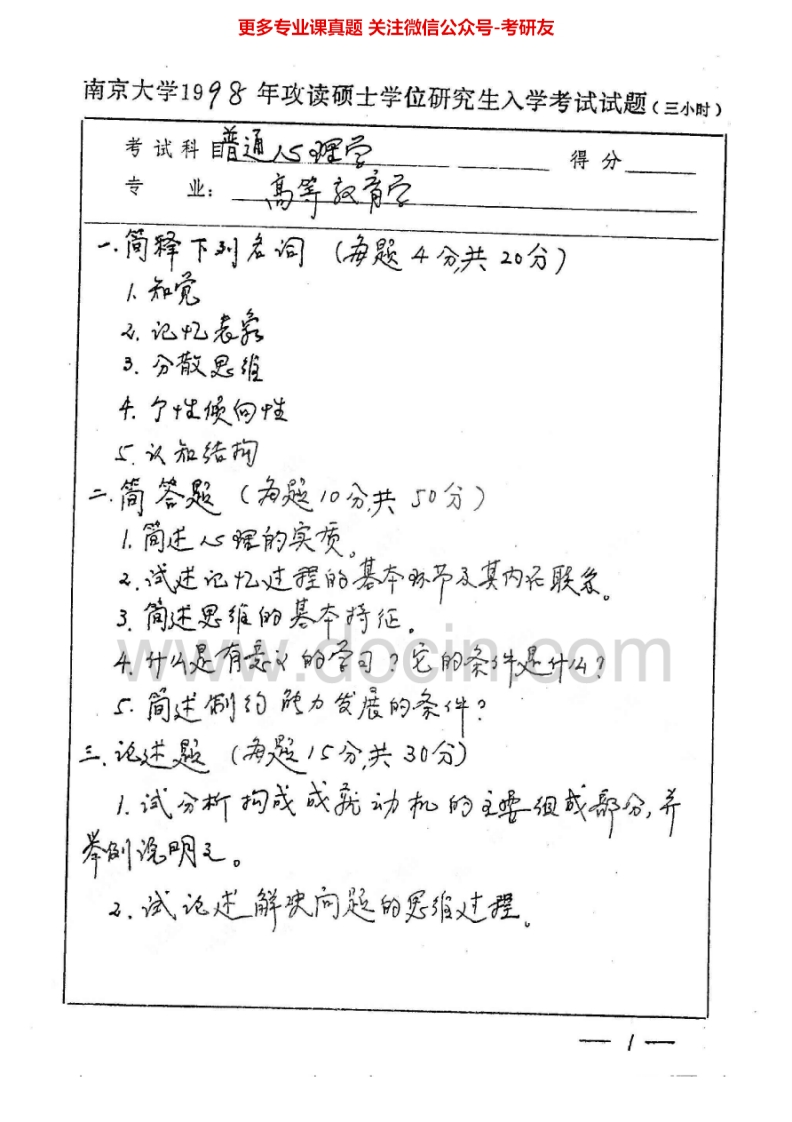 更多专业课真题 关注微信公众号-考研友
南京大学1998年攻读硕士学位研究生入学考试试题(三小时)
考试科目普通心理学 得分
专 业: 高等教育学
一.简释下列名词 (每题4分,共20分)
1. 知觉
2. 记忆表象
3. 分散思维
4. 个性倾向性
5. 认知结构
二.简答题 (每题10分,共50分)
1. 简述心理的实质。
2. 试述记忆过程的基本环节及其内在联系。
3. 简述思维的基本特征。
www.docin.com
4. 什么是有意义的学习?它的条件是什么?
5. 简述制约能力发展的条件?
三.论述题 (每题15分,共30分)
1. 试分析构成成就动机的主要组成部分,并
举例说明之。
2. 试论述解决问题的思维过程。
— 1 —